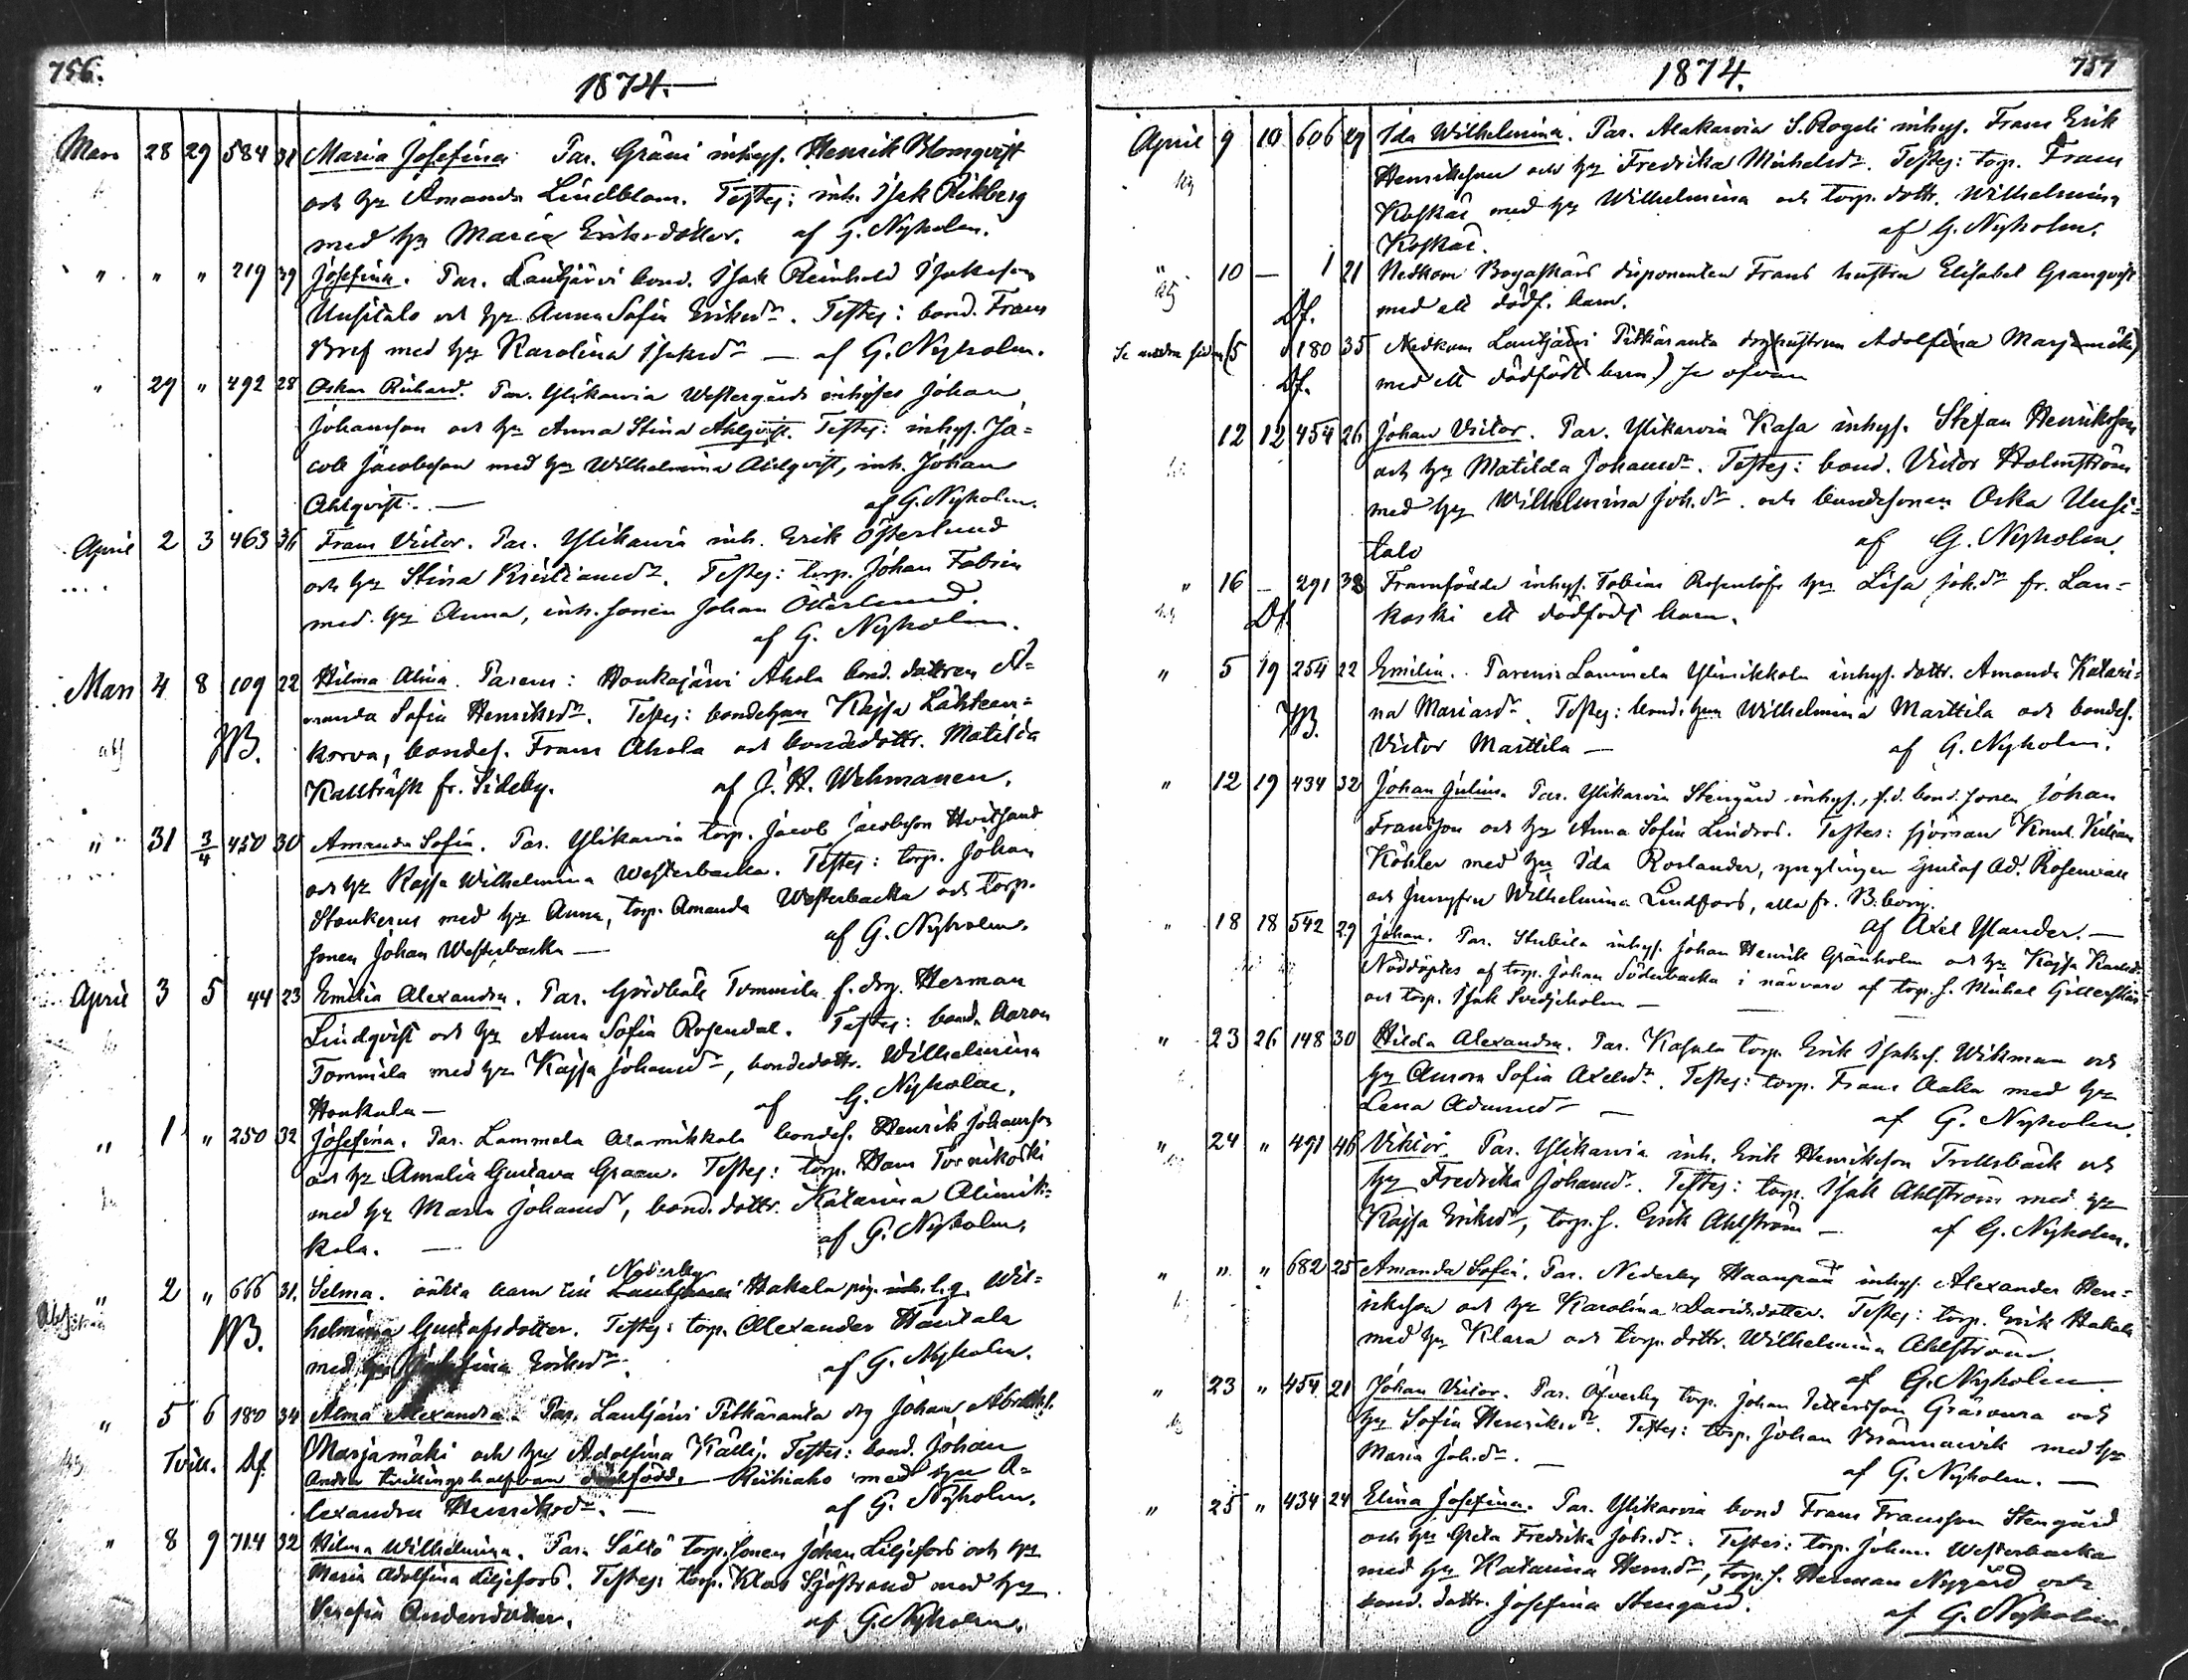 756.
1874.
Mars 28 29 584 31 Maria Josefina Par. Gräni inhys. Henrik Blomqvist
och hu Amanda Lindblom. Testes: inh. Isak Rikberg
med hu Maria Eriksdotter. af G. Nyholm.
" " " 219 39 Josefina. Par. Lautjärvi bond. Isak Reinhold Isaksson
Uusitalo och hu Anna Sofia Eriksdr. Testes: bond. Frans
Bref med hu Karolina Isaksdr — af G. Nyholm.
" 29 " 492 28 Oskar Richard. Par. Ylikarvia Westergårds inhyses Johan
Johansson och hu Anna Stina Ahlqvist. Testes: inhys. Ja=
cob Jacobsson med hu Wilhelmina Ahlqvist, inh. Johan
Ahlqvist. — af G. Nyholm.
April 2 3 463 36 Frans Victor. Par. Ylikarvia inh. Erik Österlund
och hu Stina Kristiansdr. Testes: torp. Johan Fabian
med hu Anna, inh. sonen Johan Österlund.
af G. Nyholm.
Mars 4 8 109 22 Hilma Alina. Parens: Honkajärvi Ahola bond. dottren A=
manda Sofia Henriksdr. Testes: bondehun Kajsa Lähteen=
korva, bondes. Frans Ahola och bondedottr. Matilda
Kallträsk fr. Sideby. af J. H. Wehmanen.
" 31 3/4 450 30 Amanda Sofia. Par. Ylikarvia torp. Jacob Jacobsson Hvitsand
och hu Kajsa Wilhelmina Westerbacka. Testes: torp. Johan
Stenkerus med hu Anna, torp. Amanda Westerbacka och torp.
sonen Johan Westerbacka — af G. Nyholm.
April 3 5 44 23 Emilia Alexandra. Par. Tommila f. drg. Herman
Lindqvist och hu Anna Sofia Rosendal. Testes: bond. Aaron
Tommila med hu Kajsa Johansdr, bondedottr. Wilhelmina
Honkala — af G. Nyholm.
" 1 " 250 32 Josefina. Par. Lammela Alamikkola bondes. Henrik Johansson
och hu Amalia Gustava Graan. Testes: torp. Hans Tornikoski
med hu Maria Johansdr, bond. dottr. Katarina Alimik=
kola. — af G. Nyholm.
" 2 " 666 31 Selma. oäkta barn till Nederby Hakala pig. Wil=
helmina Gustafsdotter. Testes: torp. Alexander Hautala
med hu Josefina Eriksdr. af G. Nyholm.
" 5 6 180 34 Alma Alexandra. Par. Lautjärvi Pitkäranta drg Johan
Tvill. Df. Marjamäki och hu Adolfina Källsj. Testes: bond. Johan
Andra tvillingshalfvan dödfödd. Riihiaho med hu A=
lexandra Henriksdr. — af G. Nyholm.
" 8 9 714 32 Hilma Wilhelmina. Par. Sältö torp. sonen Johan Liljefors och hu
Maria Adolfina Liljefors. Testes: torp. Klas Sjöstrand med hu
Serafia Andersdotter. af G. Nyholm.
1874.
757
April 9 10 606 29 Ida Wilhelmina. Par. Alakarvia S. Rogeli inhys. Frans Erik
Henriksson och hu Fredrika Michelsdr. Testes: torp. Frans
Koskas med hu Wilhelmina och torp. dottr. Wilhelmina
Koskas. af G. Nyholm.
" 10 — 1 21 Nedkom Bogaskärs disponenten Frans hustru Elisabet Granqvist
Df. med ett dödf. barn.
5 180 35 Nedkom Lautjärvi Pitkäranta drg hustrun Adolfina Marjamäki
Df. med ett dödfödt barn.) se ofvan
12 12 454 26 Johan Victor. Par. Ylikarvia Kasa inhys. Stefan Henriksson
och hu Matilda Johansdr. Testes: bond. Victor Holmström
med hu Wilhelmina Joh.dr. och bondesonen Oska Uusi=
talo af G. Nyholm.
" 16 — 291 38 Framfödde inhys. Tobias Rosenlöfs hu Lisa Joh.dr fr. Lan=
Df koski ett dödfödt barn.
" 5 19 254 22 Emilia. Parens Lammela Ylimikkola inhys. dottr. Amanda Katari=
na Mariasdr. Testes: bond. hun Wilhelmina Marttila och bondes.
Victor Marttila — af G. Nyholm.
" 12 19 434 32 Johan Julius. Par. Ylikarvia Stengård inhys., f.d. bond. sonen Johan
Fransson och hu Anna Sofia Lindros. Testes: Knut Kilian
Köhler med hu Ida Roslander, ynglingen Gustaf Ad. Rosenvall
och Jungfru Wilhelmina Lindfors, alla fr. B:borg.
af Axel Ylander. —
" 18 18 542 29 Johan. Par. Stubila inhys. Johan Henrik Gränholm och hu Kajsa Karlsdr.
Nöddöptes af torp. Johan Söderbacka i närvaro af torp. s. Michel Gillerskär
och torp. Isak Svedjeholm —
" 23 26 148 30 Hilda Alexandra. Par. Kasala torp. Erik Isakss. Wikman och
hu Aurora Sofia Axelsdr. Testes: torp. Frans Aalla med hu
Lena Adamsdr — af G. Nyholm.
" 24 " 491 46 Viktor. Par. Ylikarvia inh. Erik Henriksson Trollsbäck och
hu Fredrika Johansdr. Testes: torp. Isak Ahlström med hu
Kajsa Eriksdr, torp. s. Erik Ahlström — af G. Nyholm.
" " " 682 25 Amanda Sofia. Par. Nederby Haanpää inhys. Alexander Hen=
riksson och hu Karolina Davidsdotter. Testes: torp. Erik Hakala
med hu Klara och torp. dottr. Wilhelmina Ahlström.
af G. Nyholm.
" 23 " 454 21 Johan Victor. Par. Öfverby torp. Johan Pettersson Gräsoura och
hu Sofia Henriksdr. Testes: torp. Johan Brännavik med hu
Maria Joh.dr. — af G. Nyholm. —
" 25 " 434 24 Elina Josefina. Par. Ylikarvia bond Frans Fransson Stengård
och hu Greta Fredrika Joh.dr. Testes: torp. Johan Westerbacka
med hu Katarina Hensdr, torp. s. Herman Nygård och
bond. dottr. Josefina Stengård. af G. Nyholm.